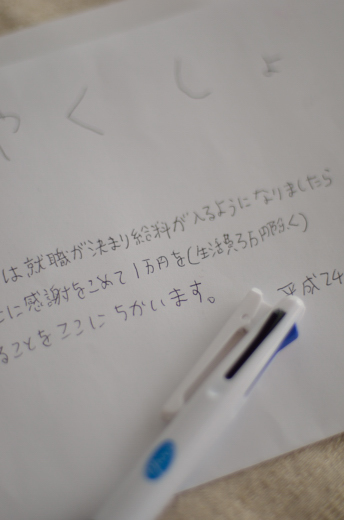 やくしょ
は就職が決まり給料が入るようになりましたら
に感謝をこめて1万円を(生活費3万円除く)
ることをここにちかいます。
平成24